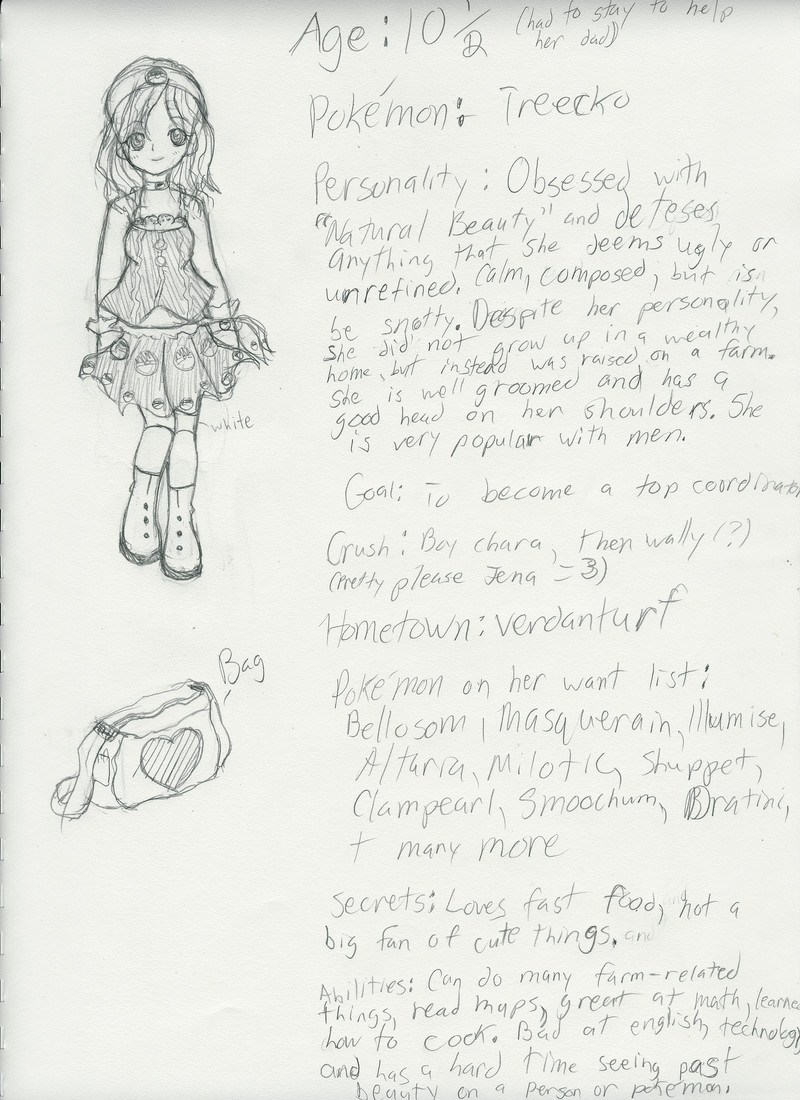 Age: 10 1/2 (had to stay to help
her dad)
Pokémon: Treecko
Personality: Obsessed with
"Natural Beauty" and deteses
anything that she deems ugly or
unrefined. Calm, composed, but is
be snotty. Despite her personality,
she did not grow up in a wealthy
home, but instead was raised on a farm.
She is well groomed and has a
good head on her shoulders. She
is very popular with men.
white
Goal: To become a top coordinator
Crush: Boy chara, then wally (?)
(Pretty please Jena =3)
Hometown: Verdanturf
Bag
Pokémon on her want list:
Bellosom, Masquerain, Illumise,
Altaria, Milotic, Shuppet,
Clampearl, Smoochum, Dratini,
+ many more
Secrets: Loves fast food, not a
big fan of cute things. and
Abilities: Can do many farm-related
things, read maps, great at math, learned
how to cook. Bad at english, technology
and has a hard time seeing past
beauty on a person or pokémon.